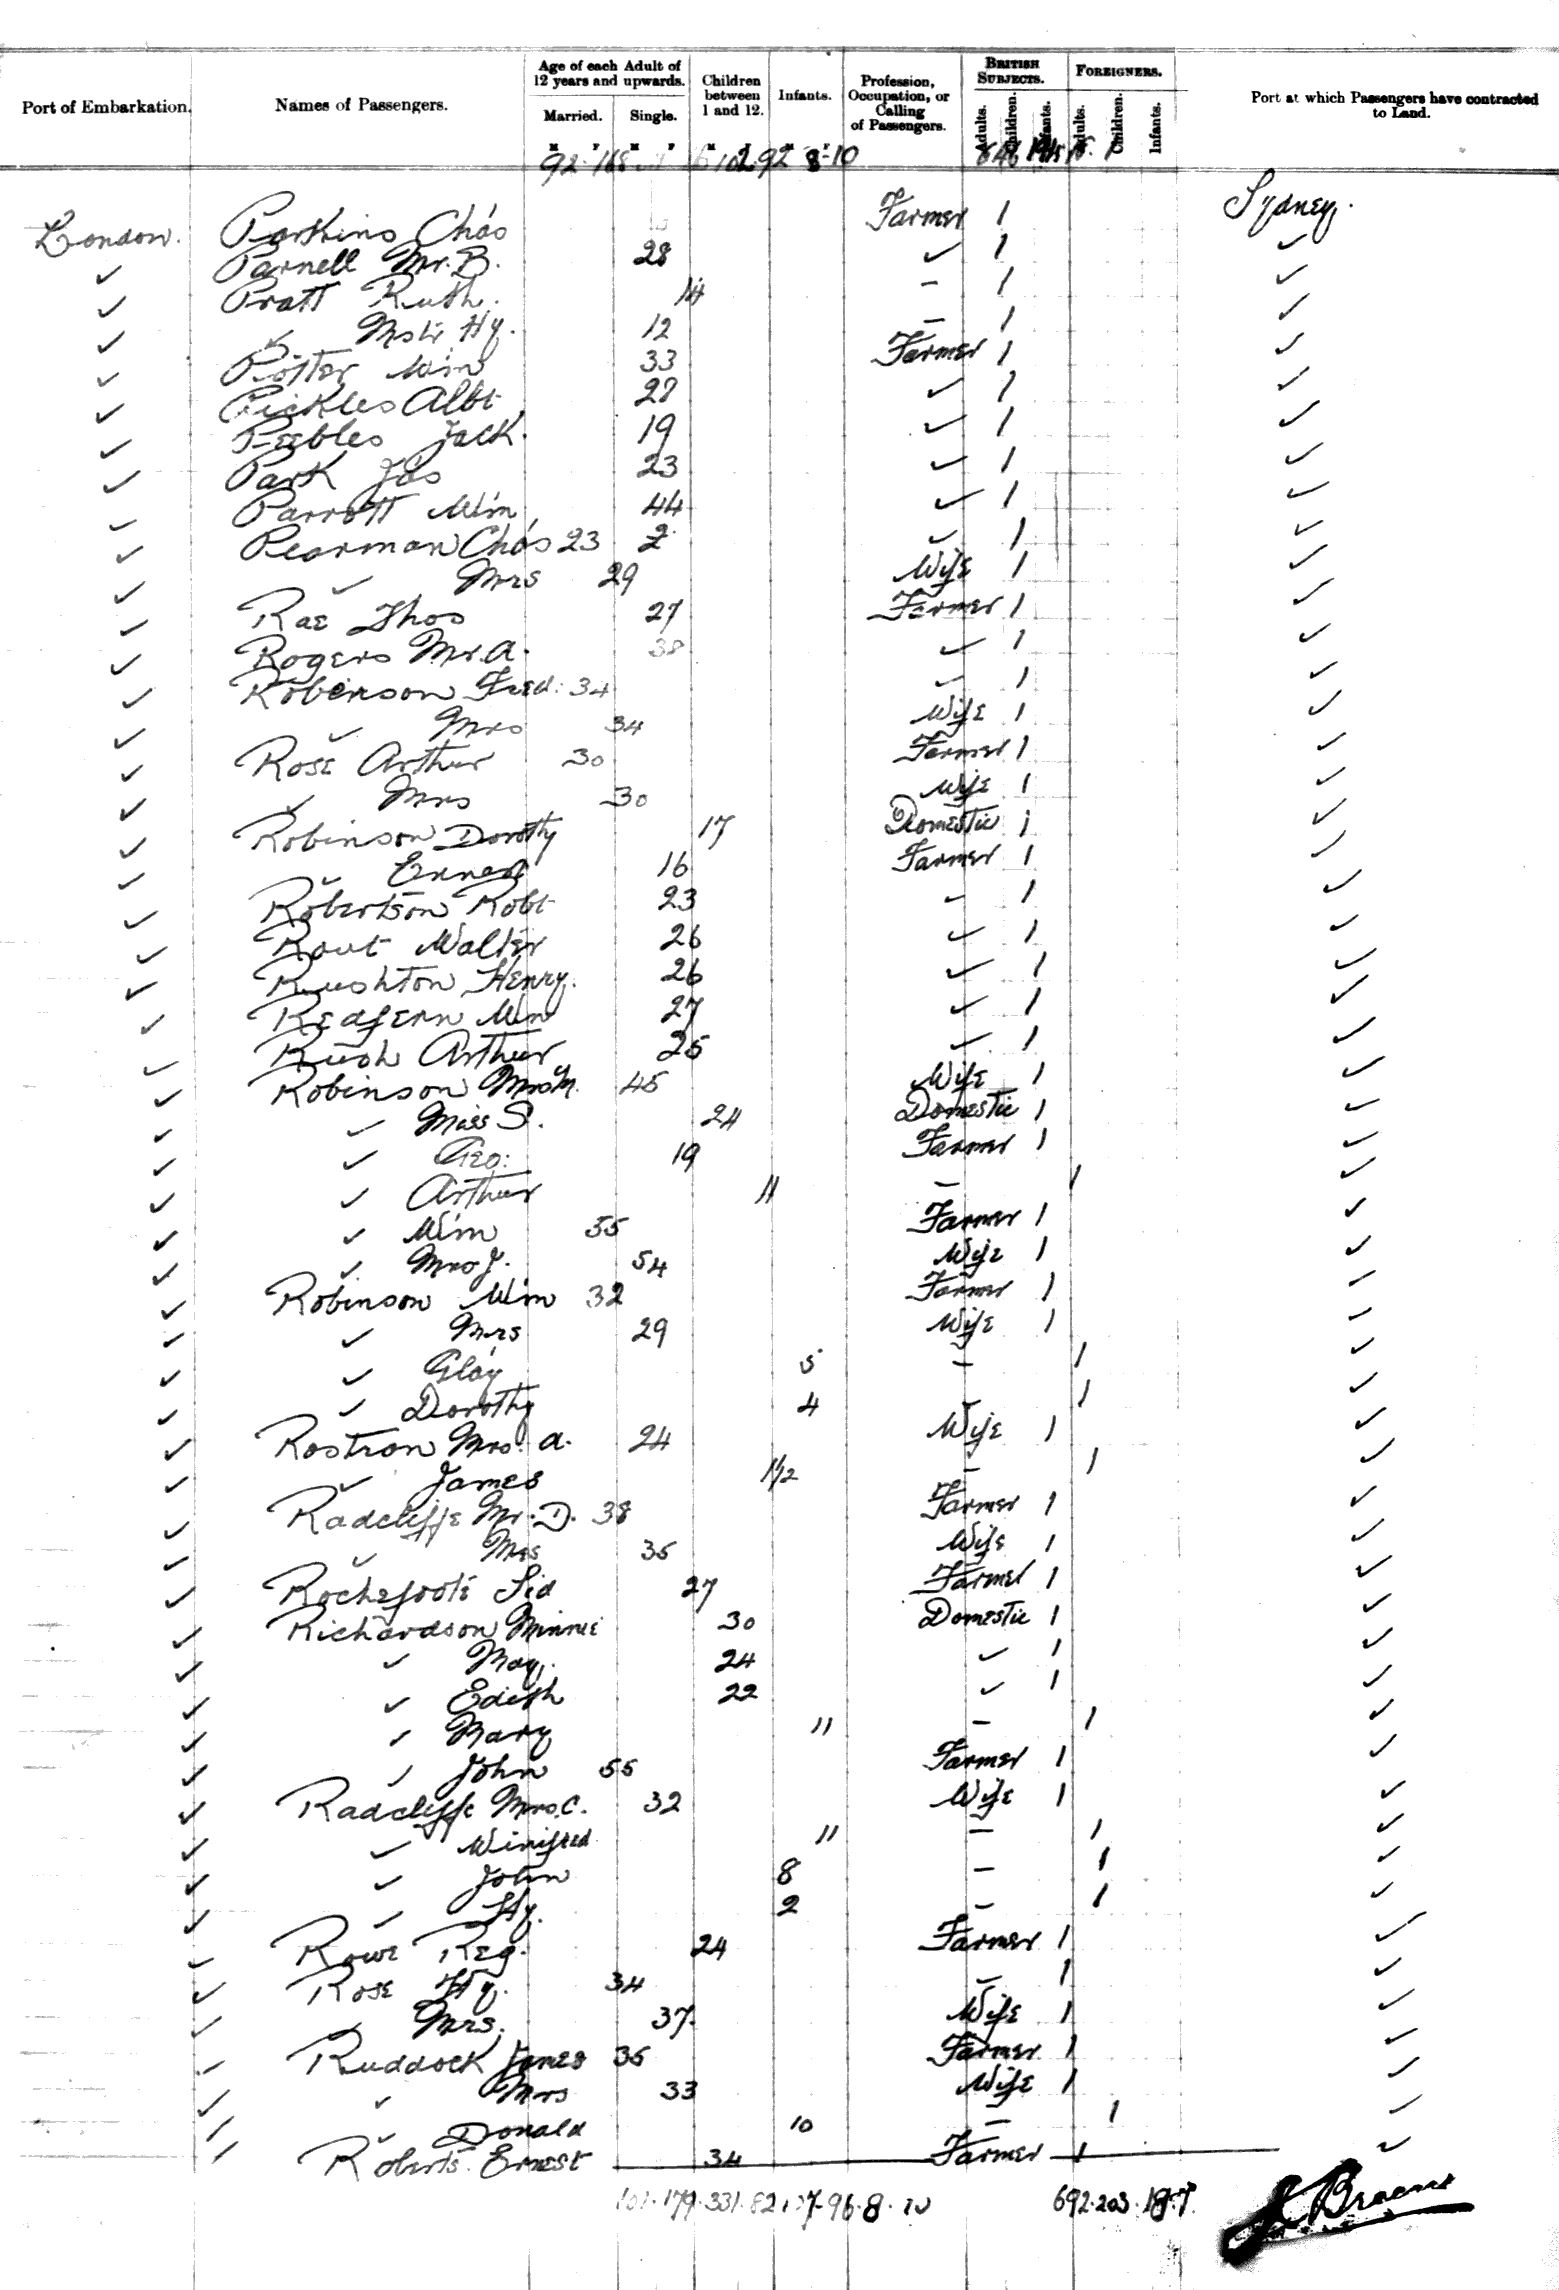 Port of Embarkation. Names of Passengers. Age of each Adult of 12 years and upwards. Married. Single. Children between 1 and 12. Infants. Profession, Occupation, or Calling of Passengers. BRITISH SUBJECTS. Adults. Children. Infants. FOREIGNERS. Adults. Children. Infants. Port at which Passengers have contracted to Land.
London. Parkins Chas Farmer 1 Sydney.
✓ Parnell Mr. B. 28 ✓ 1 ✓
✓ Pratt Ruth. 14 – 1 ✓
✓ ✓ Mstr Hy. 12 – 1 ✓
✓ Potter Wm 33 Farmer 1 ✓
✓ Pickles Albt 28 ✓ 1 ✓
✓ Peebles Jack. 19 ✓ 1 ✓
✓ Park Jas 23 ✓ 1 ✓
✓ Parrott Wm 44 ✓ 1 ✓
✓ Pearman Chas 23 ✓ 1 ✓
✓ ✓ Mrs 29 Wife 1 ✓
✓ Rae Thos 27 Farmer 1 ✓
✓ Rogers Mr. A. 38 ✓ 1 ✓
✓ Robinson Fred. 34 ✓ 1 ✓
✓ ✓ Mrs 34 Wife 1 ✓
✓ Rose Arthur 30 Farmer 1 ✓
✓ ✓ Mrs 30 Wife 1 ✓
✓ Robinson Dorothy 17 Domestic 1 ✓
✓ ✓ Ernest 16 Farmer 1 ✓
✓ Robertson Robt 23 ✓ 1 ✓
✓ Rout Walter 26 ✓ 1 ✓
✓ Rushton Henry. 26 ✓ 1 ✓
✓ Redfern Wm 27 ✓ 1 ✓
✓ Rush Arthur 25 ✓ 1 ✓
✓ Robinson Mrs M. 45 Wife 1 ✓
✓ ✓ Miss S. 24 Domestic 1 ✓
✓ ✓ Geo. 19 Farmer 1 ✓
✓ ✓ Arthur 11 – 1 ✓
✓ ✓ Wm 55 Farmer 1 ✓
✓ ✓ Mrs J. 54 Wife 1 ✓
✓ Robinson Wm 32 Farmer 1 ✓
✓ ✓ Mrs 29 Wife 1 ✓
✓ ✓ Glay 5 – 1 ✓
✓ ✓ Dorothy 4 – 1 ✓
✓ Rostron Mrs. A. 24 Wife 1 ✓
✓ ✓ James 1½ – 1 ✓
✓ Radcliffe Mr. D. 38 Farmer 1 ✓
✓ ✓ Mrs 35 Wife 1 ✓
✓ Rochefoote Sid 27 Farmer 1 ✓
✓ Richardson Minnie 30 Domestic 1 ✓
✓ ✓ May. 24 ✓ 1 ✓
✓ ✓ Edith 22 ✓ 1 ✓
✓ ✓ Mary 11 – 1 ✓
✓ ✓ John 55 Farmer 1 ✓
✓ Radcliffe Mrs. C. 32 Wife 1 ✓
✓ ✓ Winifred 11 – 1 ✓
✓ ✓ John 8 – 1 ✓
✓ ✓ Hy. 2 – 1 ✓
✓ Rowe Reg. 24 Farmer 1 ✓
✓ Rose Hy. 34 – 1 ✓
✓ ✓ Mrs. 37 Wife 1 ✓
✓ Ruddock James 35 Farmer 1 ✓
✓ ✓ Mrs 33 Wife 1 ✓
✓ ✓ Donald 10 – 1 ✓
✓ Roberts Ernest 34 Farmer 1 ✓
692 . 203 .